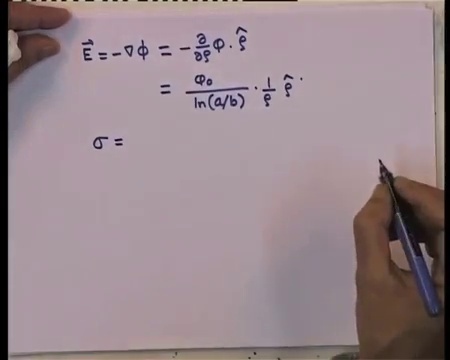 E⃗ = -∇ϕ = - ∂/∂ρ φ · ρ̂
= φ₀/ln(a/b) · 1/ρ ρ̂ ·
σ =